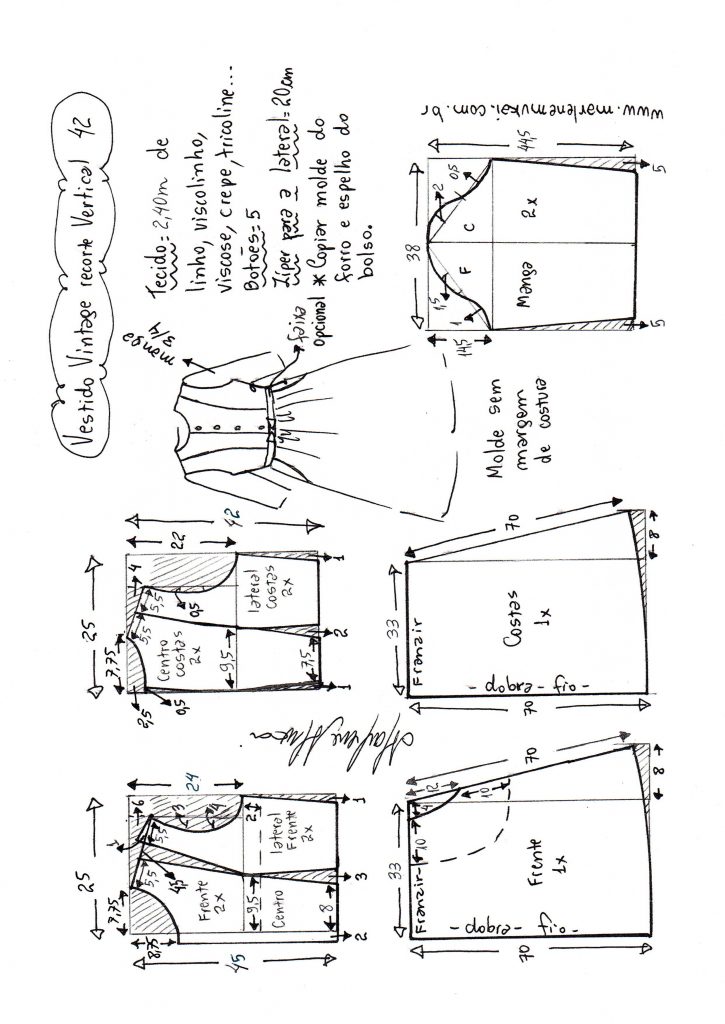 Vestido Vintage recorte Vertical 42
Tecido = 2,40m de
linho, viscolinho,
viscose, crepe, tricoline...
Botões = 5
Zíper para a lateral = 20cm
* Copiar molde do
forro e espelho do
bolso.
manga
3/4
faixa
opcional
Molde sem
margem
de costura
www.marlenemukai.com.br
25
7,75
8,75
45
24
6
1
5,5
5,5
4,5
3
4
2
9,5
8
Frente
2x
Centro
lateral
Frente
2x
2
3
1
25
7,75
2,5
0,5
42
22
4
5,5
5,5
0,5
9,5
7,5
Centro
costas
2x
lateral
costas
2x
1
2
1
38
44,5
14,5
1
1,5
2
0,5
F
C
Manga
2x
5
5
33
70
70
8
12
4
10
10
Franzir
Frente
1x
- dobra - fio -
33
70
70
8
Franzir
Costas
1x
- dobra - fio -
Marlene Mukai